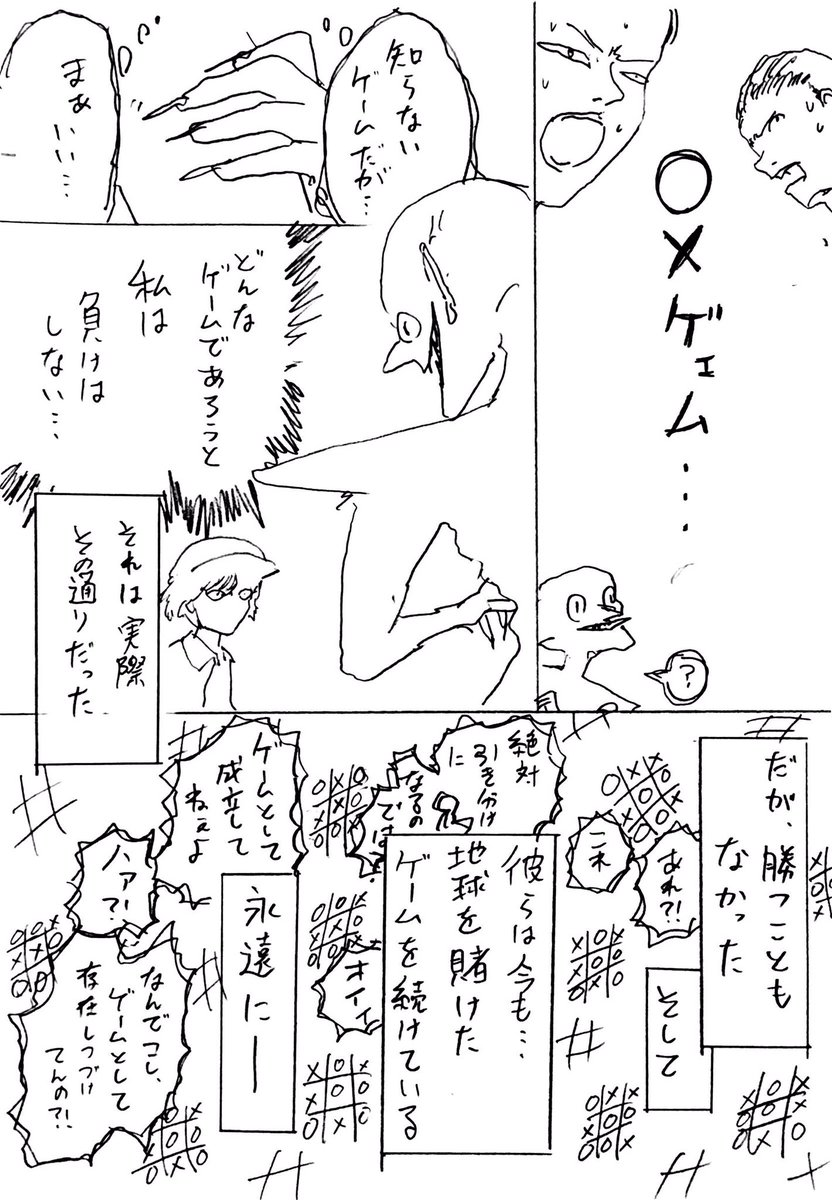 〇×ゲェム…
?
知らない
ゲームだが…
まぁ
いい…
どんな
ゲームであろうと
私は
負けは
しない…
それは実際
その通りだった
だが、勝つことも
なかった
そして
あれ?!
これ
絶対
引き分け
に
なるの
では?
彼らは今も…
地球を賭けた
ゲームを続けている
オイィ
ゲームとして
成立して
ねぇよ
永遠にー
ハァ!?
なんでコレ、
ゲームとして
存在しつづけ
てんの?!